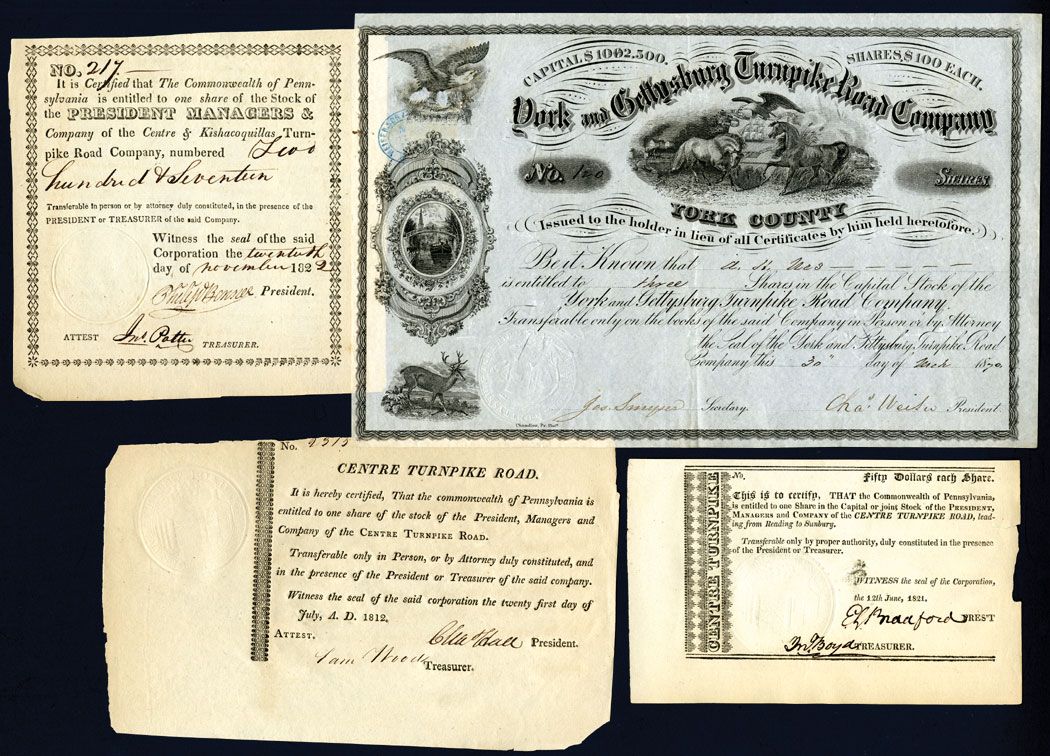 NO. 217
It is Certified that The Commonwealth of Penn-
sylvania is entitled to one share of the Stock of
the PRESIDENT MANAGERS &
Company of the Centre & Kishacoquillas Turn-
pike Road Company, numbered Two
hundred & Seventeen
Transferable in person or by attorney duly constituted, in the presence of the
PRESIDENT or TREASURER of the said Company.
Witness the seal of the said
Corporation the twentieth
day of november 1822
President.
ATTEST Jno. Potter TREASURER.
CAPITAL $ 1002.500. SHARES, $ 100 EACH.
York and Gettysburg Turnpike Road Company
No. 100 SHARES
YORK COUNTY
(Issued to the holder in lieu of all Certificates by him held heretofore.)
Be it Known that
is entitled to three Shares in the Capital Stock of the
York and Gettysburg Turnpike Road Company
Transferable only on the books of the said Company in Person or by Attorney
the Seal of the York and Gettysburg Turnpike Road
Company this 30 day of 1870
Jos. Smyser Secretary. Chas. Weiser President.
No.
CENTRE TURNPIKE ROAD.
It is hereby certified, That the commonwealth of Pennsylvania is
entitled to one share of the stock of the President, Managers and
Company of the CENTRE TURNPIKE ROAD.
Transferable only in Person, or by Attorney duly constituted, and
in the presence of the President or Treasurer of the said company.
Witness the seal of the said corporation the twenty first day of
July, A. D. 1812.
ATTEST. Hall President.
Sam Wood Treasurer.
CENTRE TURNPIKE
No. Fifty Dollars each Share.
This is to certify, THAT the Commonwealth of Pennsylvania,
is entitled to one Share in the Capital or joint Stock of the PRESIDENT,
MANAGERS and COMPANY of the CENTRE TURNPIKE ROAD, lead-
ing from Reading to Sunbury.
Transferable only by proper authority, duly constituted in the presence
of the President or Treasurer.
WITNESS the seal of the Corporation,
the 12th June, 1821.
Bradford PRES'T
Jno. Boyd TREASURER.